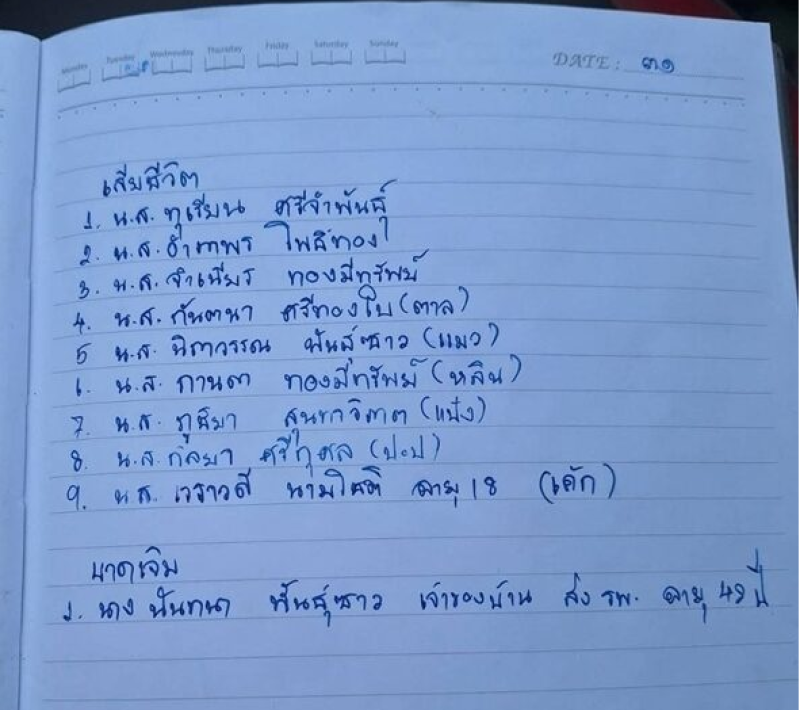 Monday Tuesday Wednesday Thursday Friday Saturday Sunday
DATE: ๓๑
เสียชีวิต
1. น.ส. ทุเรียน ศรีจำพันธุ์
2. น.ส. อำภาพร โพธิ์ทอง
3. น.ส. จำเนียร ทองมีทรัพย์
4. น.ส. กันตนา ศรีทองใบ (ตาล)
5 น.ส. นิภาวรรณ พันธุ์ขาว (แมว)
6. น.ส. กานดา ทองมีทรัพย์ (หลิน)
7. น.ส. ภูษิมา (แป้ง)
8. น.ส. กัลยา ศรีกุศล (ปะป)
9. น.ส. เวราวดี นามโชติ อายุ 18 (เค้ก)
บาดเจ็บ
1. นาง นันทนา พันธุ์ขาว เจ้าของบ้าน ส่ง รพ. อายุ 49 ปี